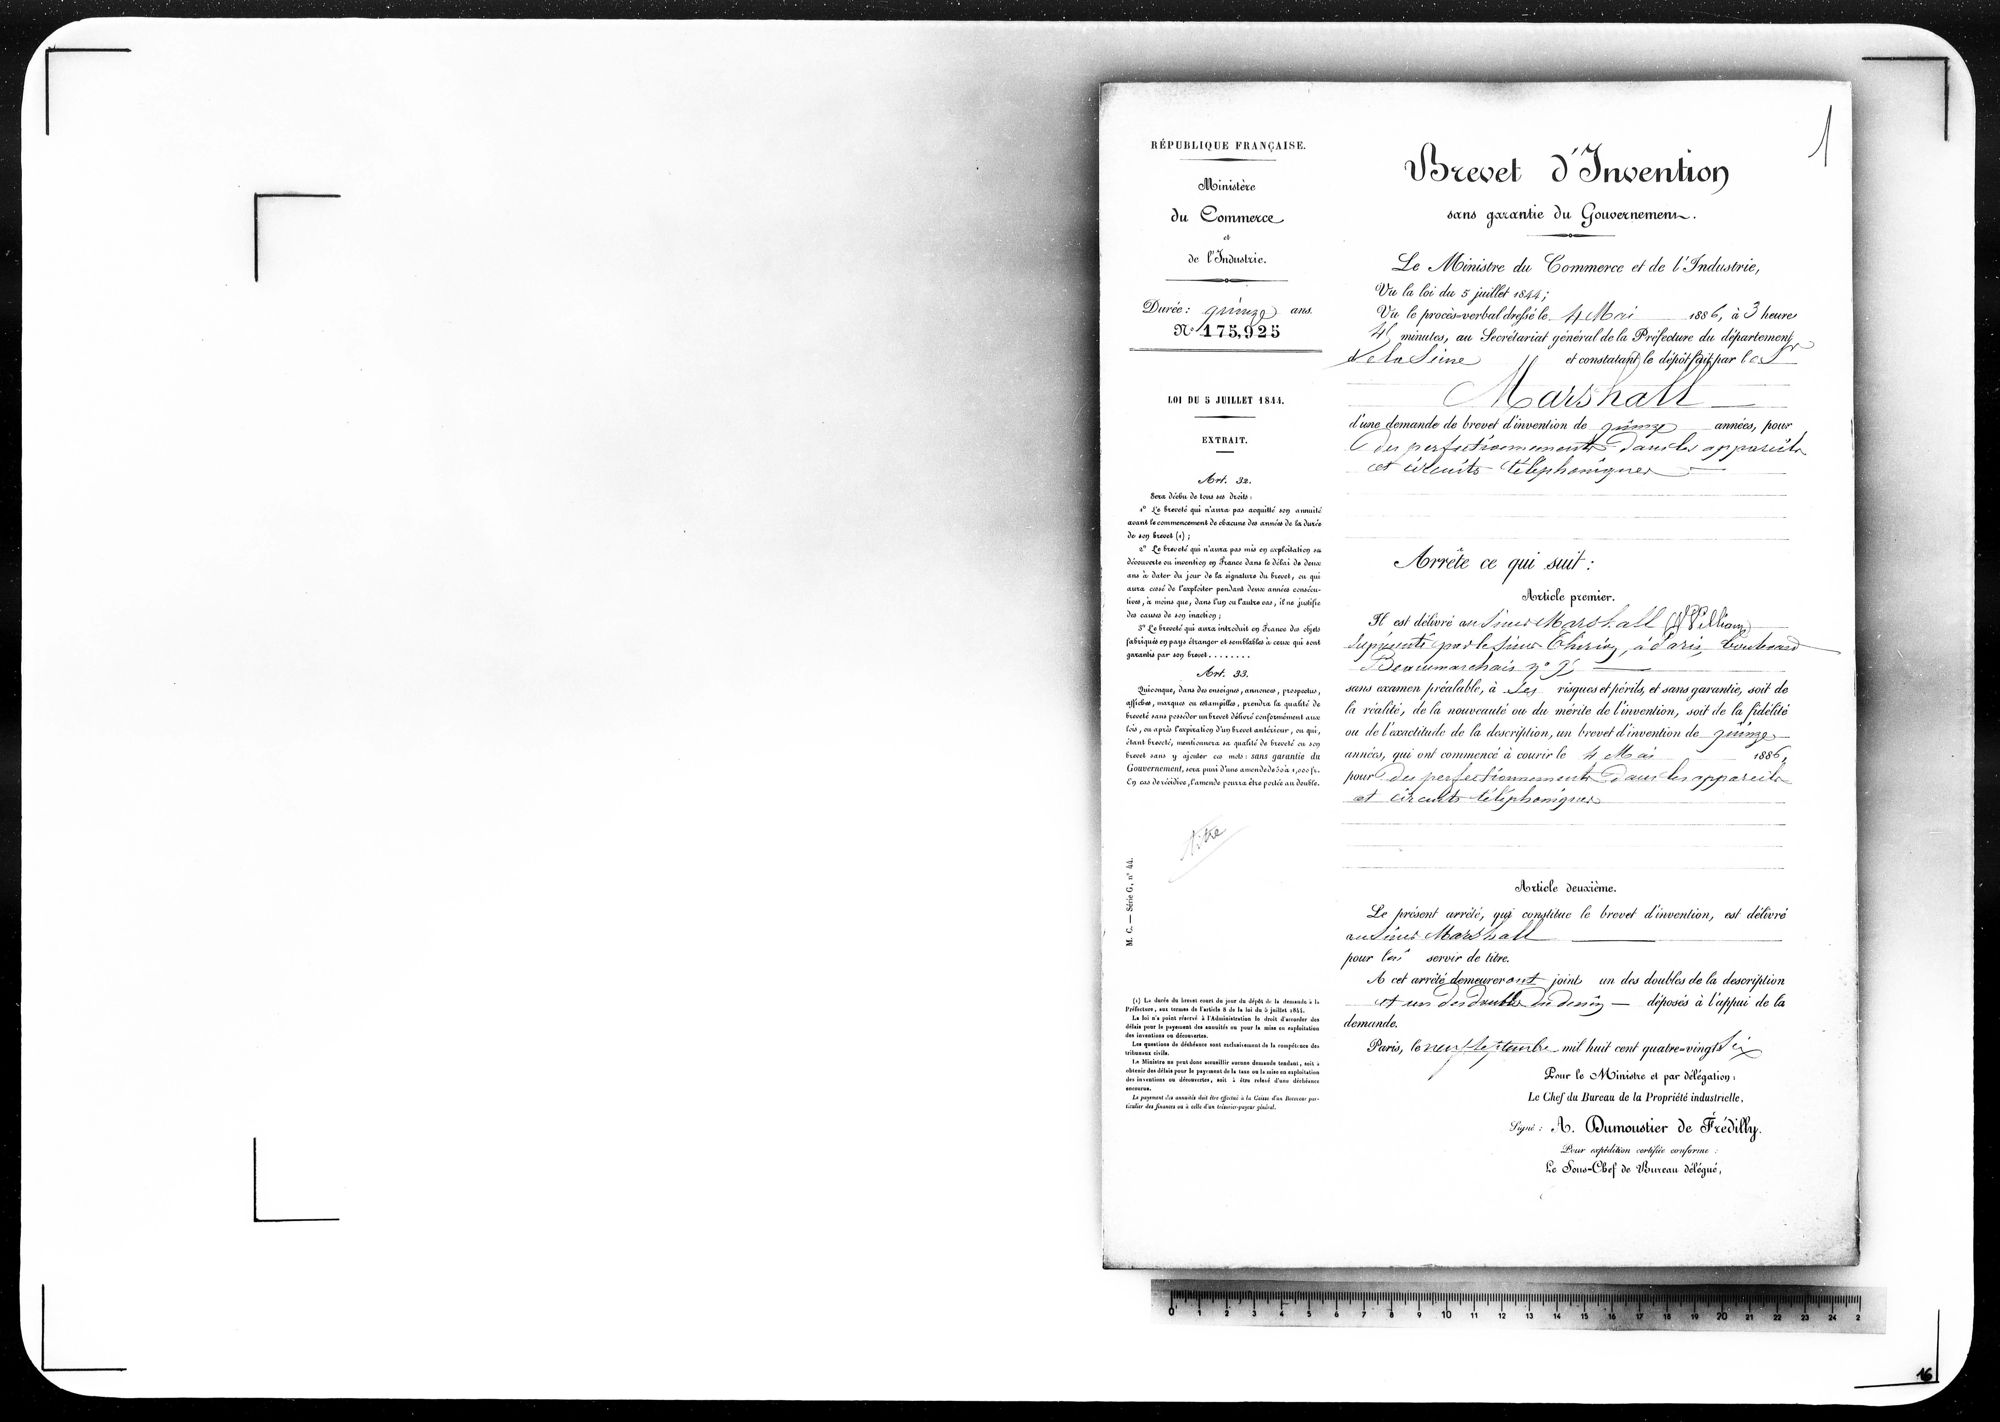 RÉPUBLIQUE FRANÇAISE.
Ministère
du Commerce
et
de l'Industrie.
Durée : quinze ans.
N° 175,925
LOI DU 5 JUILLET 1844.
EXTRAIT.
Art. 32.
Sera déchu de tous ses droits :
1° Le breveté qui n'aura pas acquitté son annuité
avant le commencement de chacune des années de la durée
de son brevet (1) ;
2° Le breveté qui n'aura pas mis en exploitation sa
découverte ou invention en France dans le délai de deux
ans à dater du jour de la signature du brevet, ou qui
aura cessé de l'exploiter pendant deux années consécu-
tives, à moins que, dans l'un ou l'autre cas, il ne justifie
des causes de son inaction ;
3° Le breveté qui aura introduit en France des objets
fabriqués en pays étranger et semblables à ceux qui sont
garantis par son brevet ........
Art. 33.
Quiconque, dans des enseignes, annonces, prospectus,
affiches, marques ou estampilles, prendra la qualité de
breveté sans posséder un brevet délivré conformément aux
lois, ou après l'expiration d'un brevet antérieur, ou qui,
étant breveté, mentionnera sa qualité de breveté ou son
brevet sans y ajouter ces mots : sans garantie du
Gouvernement, sera puni d'une amende de 50 à 1,000 fr.
En cas de récidive, l'amende pourra être portée au double.
titre
M. C. — Série G, n° 44.
(1) La durée du brevet court du jour du dépôt de la demande à la
Préfecture, aux termes de l'article 8 de la loi du 5 juillet 1844.
La loi n'a point réservé à l'Administration le droit d'accorder des
délais pour le payement des annuités ou pour la mise en exploitation
des inventions ou découvertes.
Les questions de déchéance sont exclusivement de la compétence des
tribunaux civils.
Le Ministre ne peut donc accueillir aucune demande tendant, soit à
obtenir des délais pour le payement de la taxe ou la mise en exploitation
des inventions ou découvertes, soit à être relevé d'une déchéance
encourue.
Le payement des annuités doit être effectué à la Caisse d'un Receveur par-
ticulier des finances ou à celle d'un trésorier-payeur général.
1
Brevet d'Invention
sans garantie du Gouvernement.
Le Ministre du Commerce et de l'Industrie,
Vu la loi du 5 juillet 1844 ;
Vu le procès-verbal dressé le 4 Mai 1886, à 3 heures
minutes, au Secrétariat général de la Préfecture du département
de la Seine et constatant le dépôt fait par le Sr
Marshall
d'une demande de brevet d'invention de quinze années, pour
des perfectionnements dans les appareils
et circuits téléphoniques
Arrête ce qui suit :
Article premier.
Il est délivré au Sieur Marshall (William)
représenté par le Sieur Thirion, à Paris, boulevard
Beaumarchais n° 95
sans examen préalable, à ses risques et périls, et sans garantie, soit de
la réalité, de la nouveauté ou du mérite de l'invention, soit de la fidélité
ou de l'exactitude de la description, un brevet d'invention de quinze
années, qui ont commencé à courir le 4 Mai 1886,
pour des perfectionnements dans les appareils
et circuits téléphoniques
Article deuxième.
Le présent arrêté, qui constitue le brevet d'invention, est délivré
au Sieur Marshall
pour lui servir de titre.
A cet arrêté demeureront joint un des doubles de la description
et un des doubles du dessin — déposés à l'appui de la
demande.
Paris, le neuf Septembre mil huit cent quatre-vingt Six
Pour le Ministre et par délégation :
Le Chef du Bureau de la Propriété industrielle,
Signé : A. Dumoustier de Frédilly.
Pour expédition certifiée conforme :
Le Sous-Chef de Bureau délégué,
0 1 2 3 4 5 6 7 8 9 10 11 12 13 14 15 16 17 18 19 20 21 22 23 24 2
16